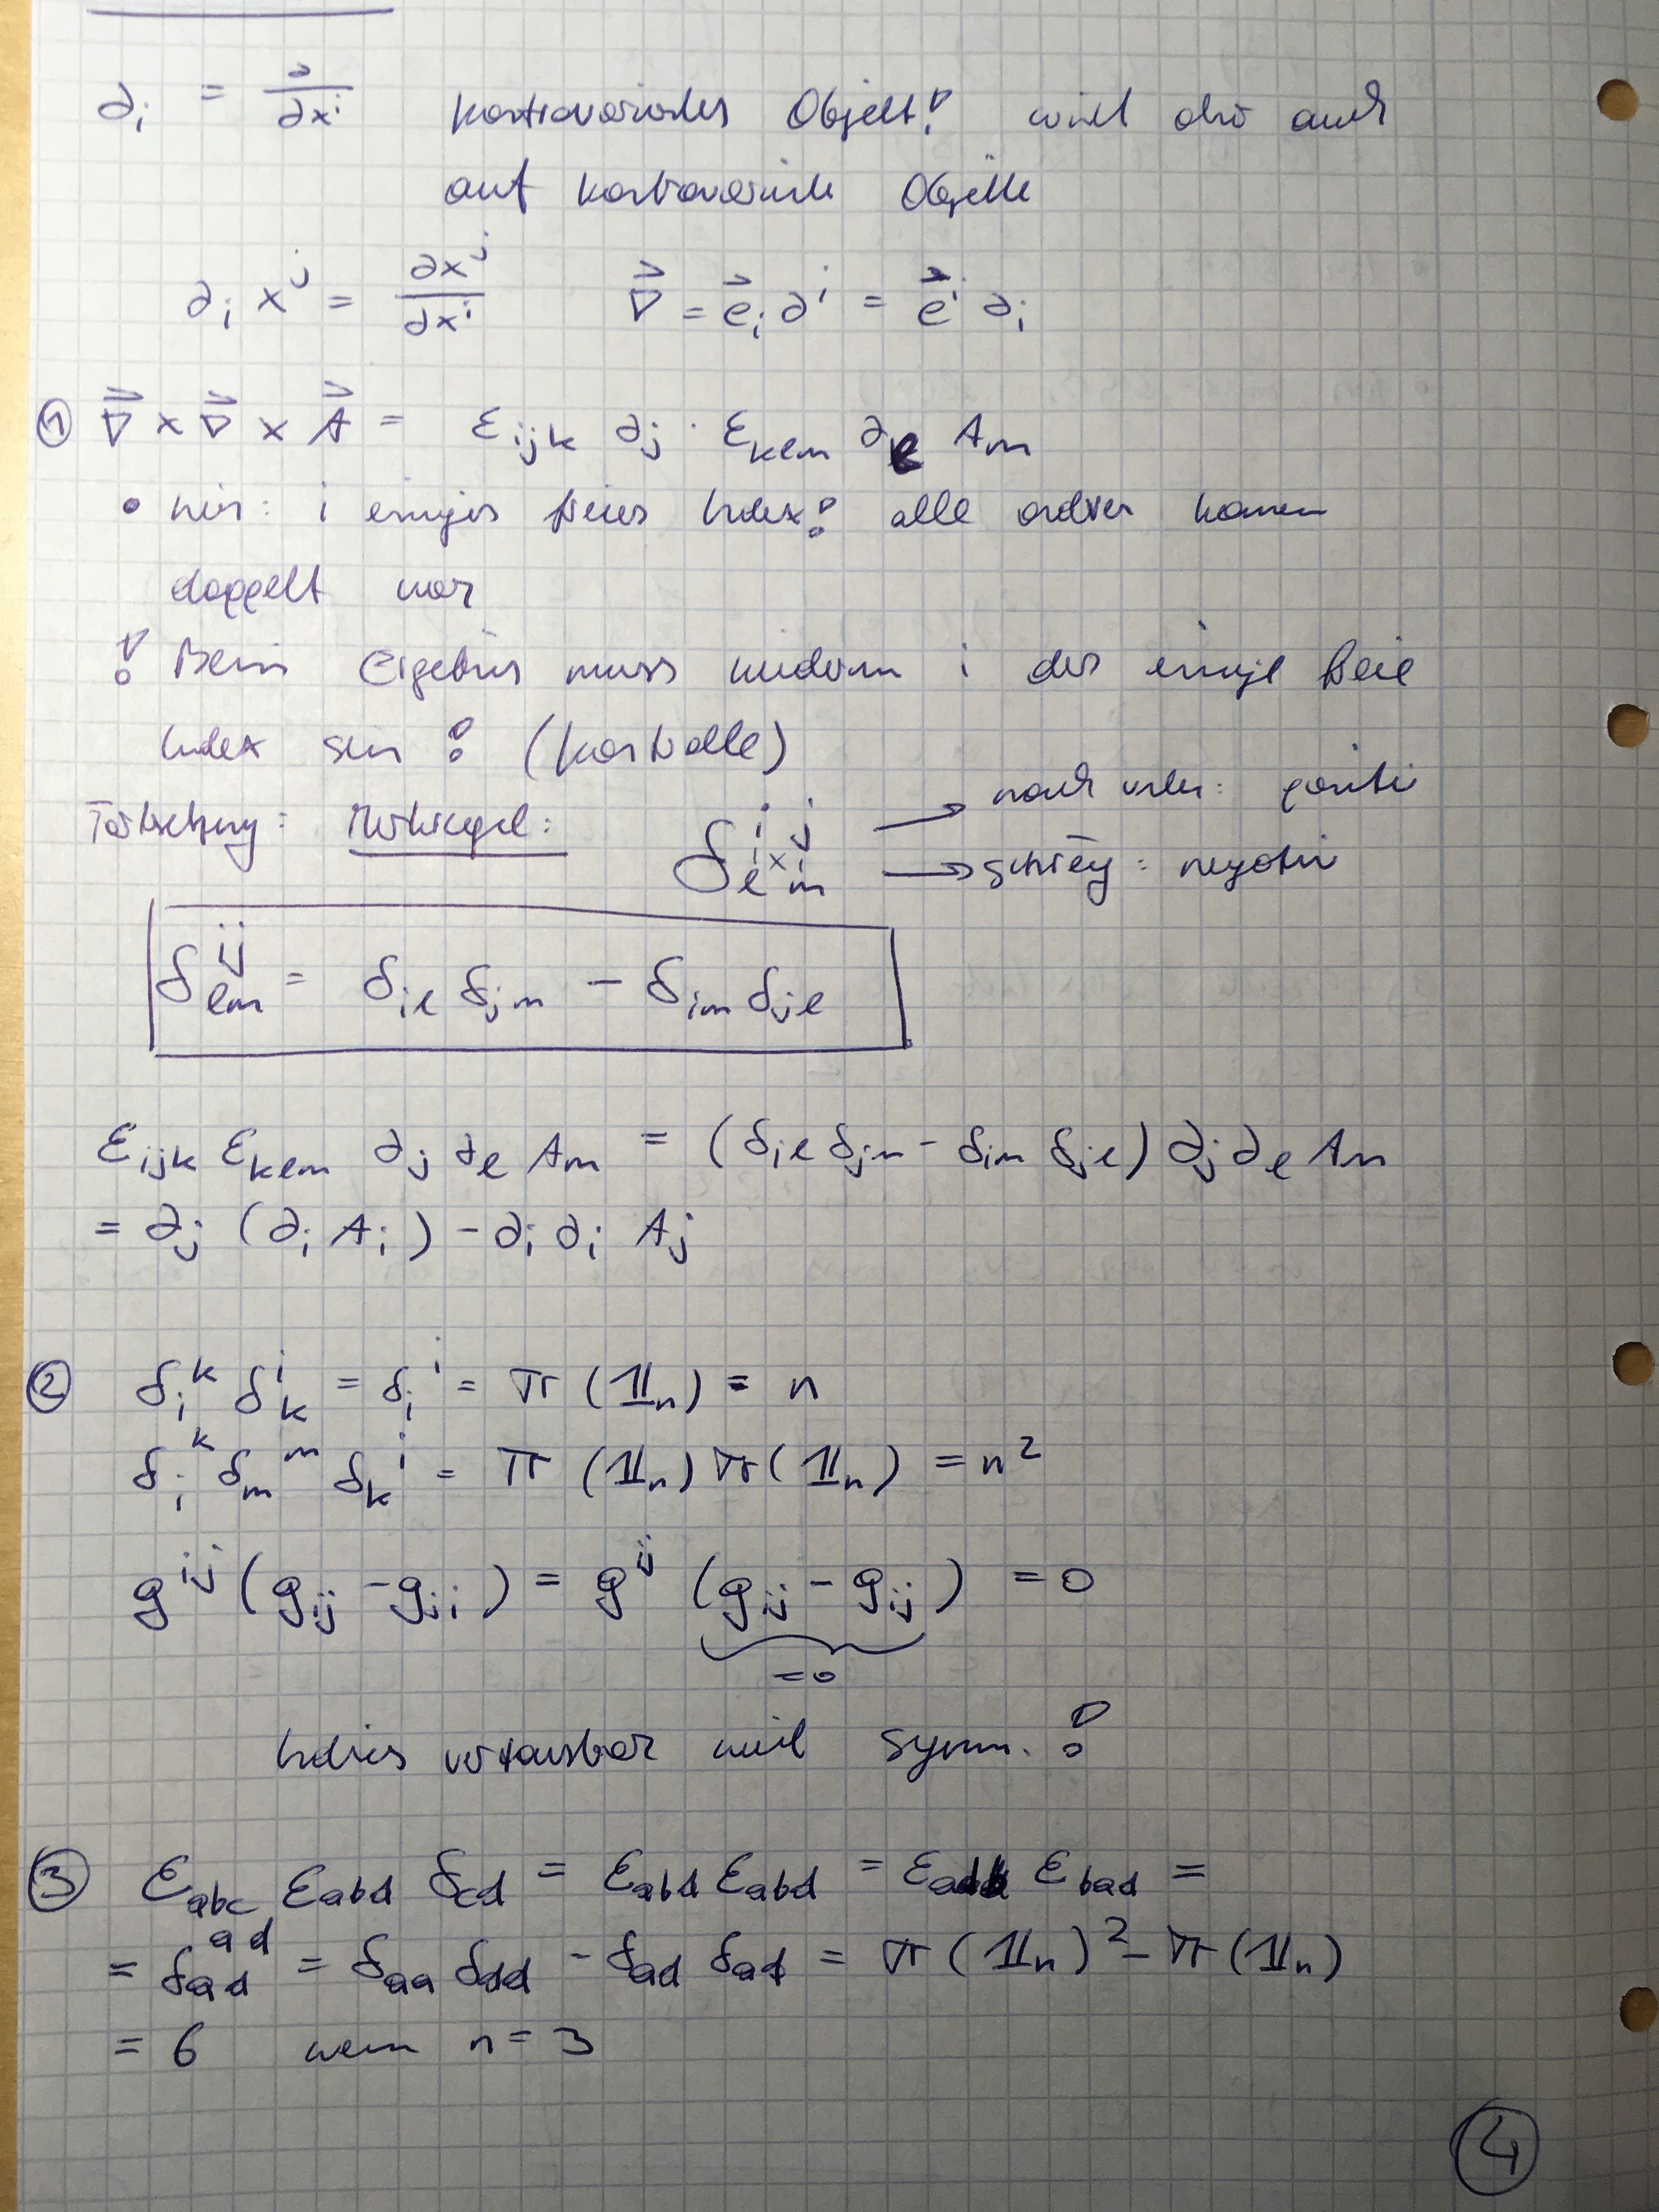 ∂_i = ∂/∂x^i kontravariantes Objekt! wirkt also auch
auf kontravariante Objekte
∂_i x^j = ∂x^j/∂x^i ∇⃗ = e⃗_i ∂^i = e⃗^i ∂_i
① ∇⃗ × ∇⃗ × A⃗ = ε_ijk ∂_j · ε_klm ∂_l A_m
• hier: i einziges freies Index! alle andren kommen
doppelt vor
! Beim Ergebnis muss wiederum i der einzige freie
Index sein! (Kontrolle)
Fortsetzung: Merkregel: δ^{i j}_{l m} → nach unten: positiv
→ schräg: negativ
δ^{ij}_{lm} = δ_il δ_jm − δ_im δ_jl
ε_ijk ε_klm ∂_j ∂_l A_m = (δ_il δ_jm − δ_im δ_jl) ∂_j ∂_l A_m
= ∂_j (∂_i A_i) − ∂_i ∂_i A_j
② δ_i^k δ_k^i = δ_i^i = Tr (𝟙_n) = n
δ_i^k δ_m^m δ_k^i = Tr (𝟙_n) Tr (𝟙_n) = n²
g^{ij} (g_ij − g_ji) = g^{ij} (g_ij − g_ij) = 0
= 0
Indices vertauschbar weil symm.!
③ ε_abc ε_abd δ_cd = ε_abd ε_abd = ε_adb ε_bad =
= δ^{ad}_{ad} = δ_aa δ_dd − δ_ad δ_ad = Tr (𝟙_n)² − Tr (𝟙_n)
= 6 wenn n = 3
④